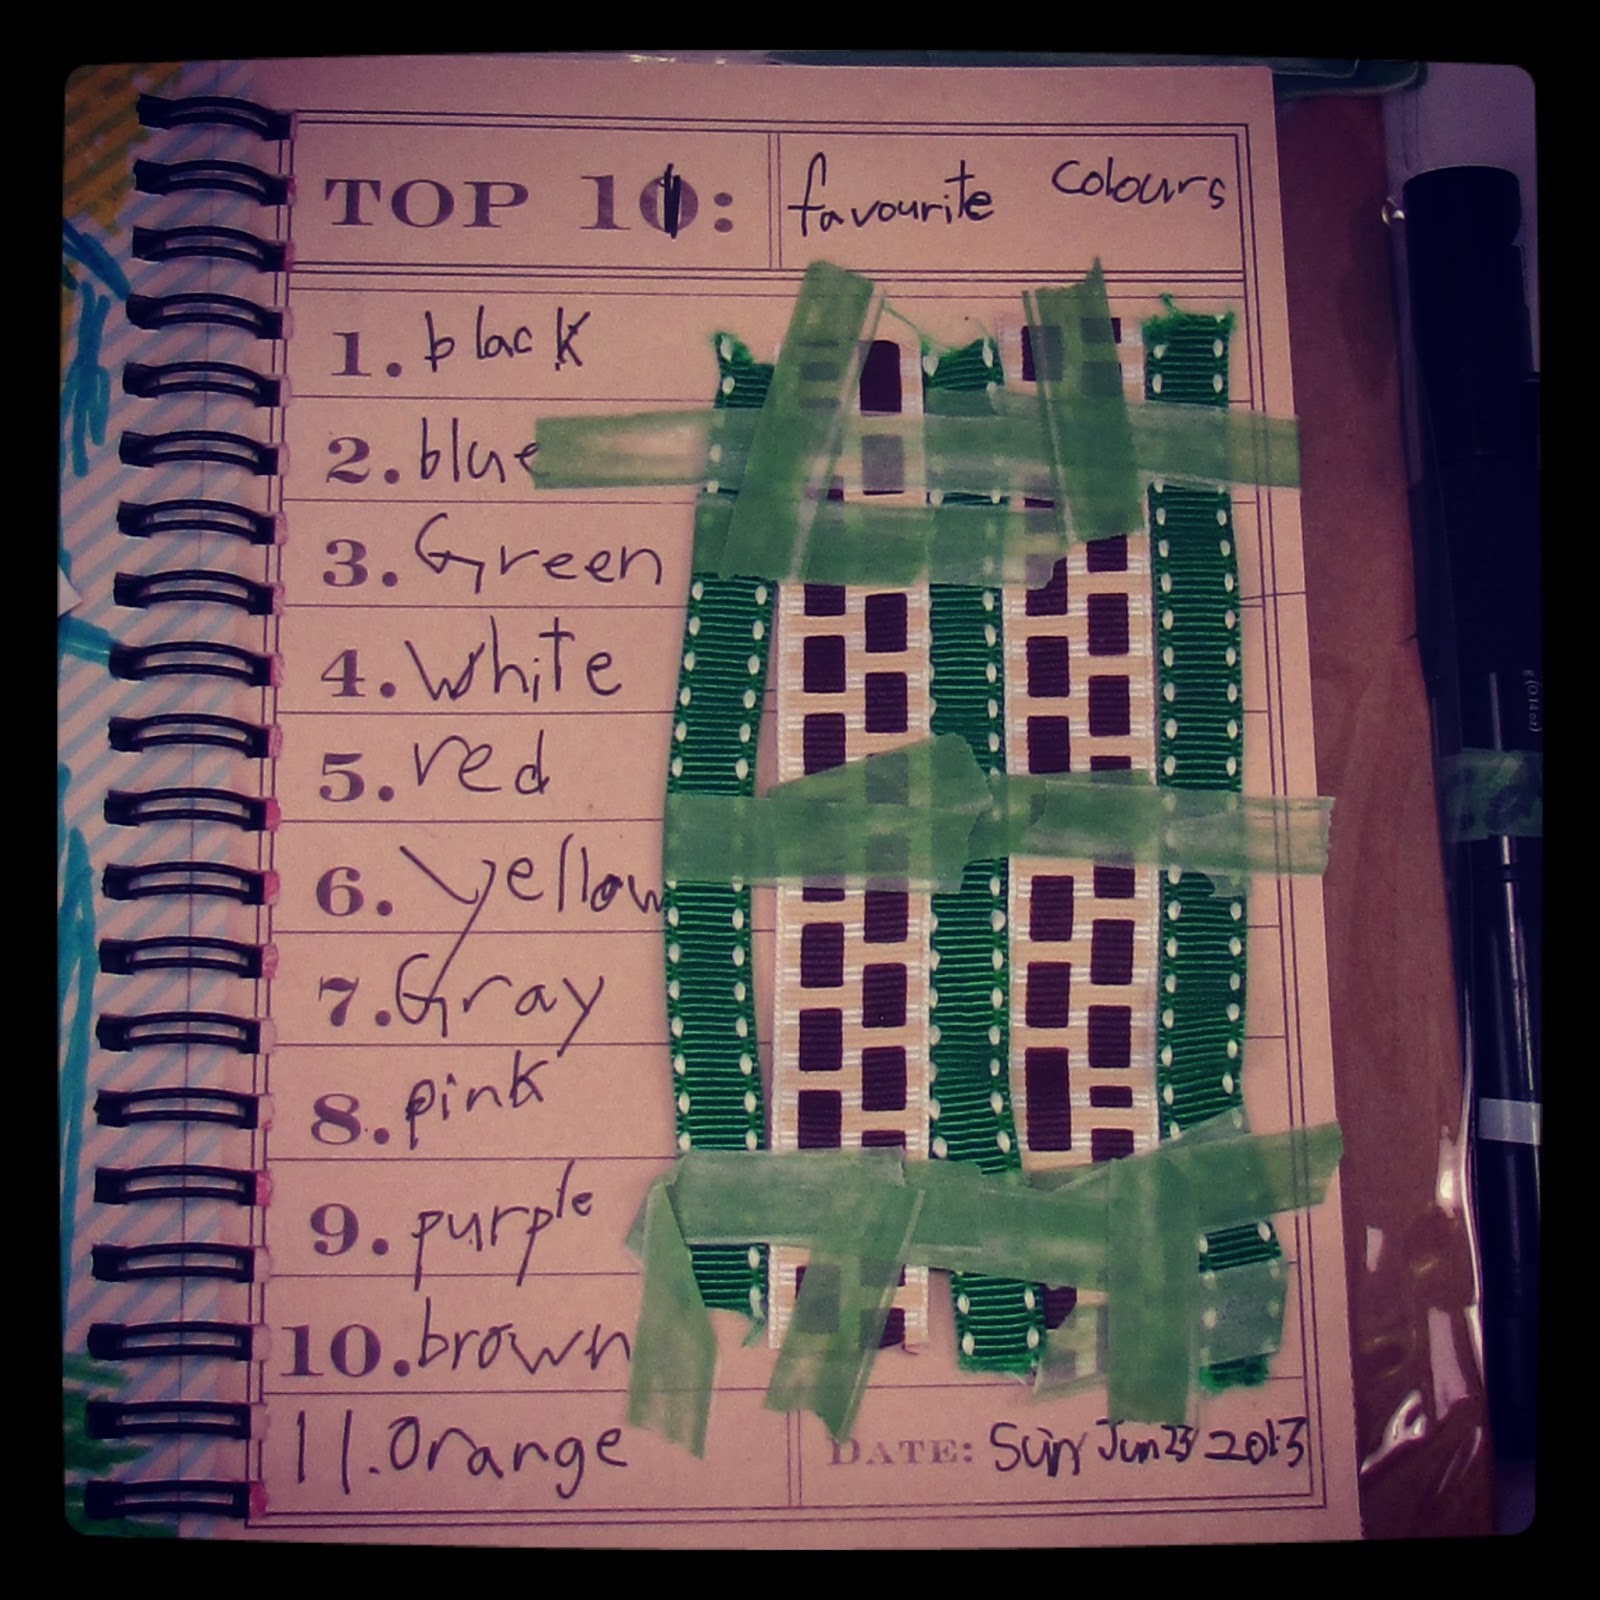 TOP 11: favourite colours
1. black
2. blue
3. Green
4. white
5. red
6. yellow
7. Gray
8. pink
9. purple
10. brown
11. Orange
DATE: Sun Jun 23 2013